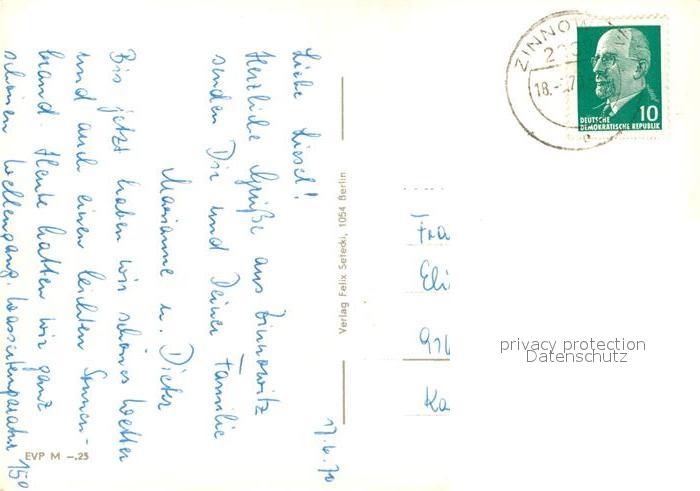 17.6.70
Liebe Liesel!
Herzliche Grüße aus Zinnowitz
senden Dir und Deiner Familie
Marianne u. Dieter
Bis jetzt haben wir schönes Wetter
und auch einen leichten Sonnen-
brand. Heute hatten wir ganz
schönen Wellengang. Wassertemperatur 15°
EVP M -.25
Verlag Felix Setecki, 1054 Berlin
ZINNOW
18.-
70
DEUTSCHE
DEMOKRATISCHE REPUBLIK
10
Fra
Eli
Ka
privacy protection
Datenschutz